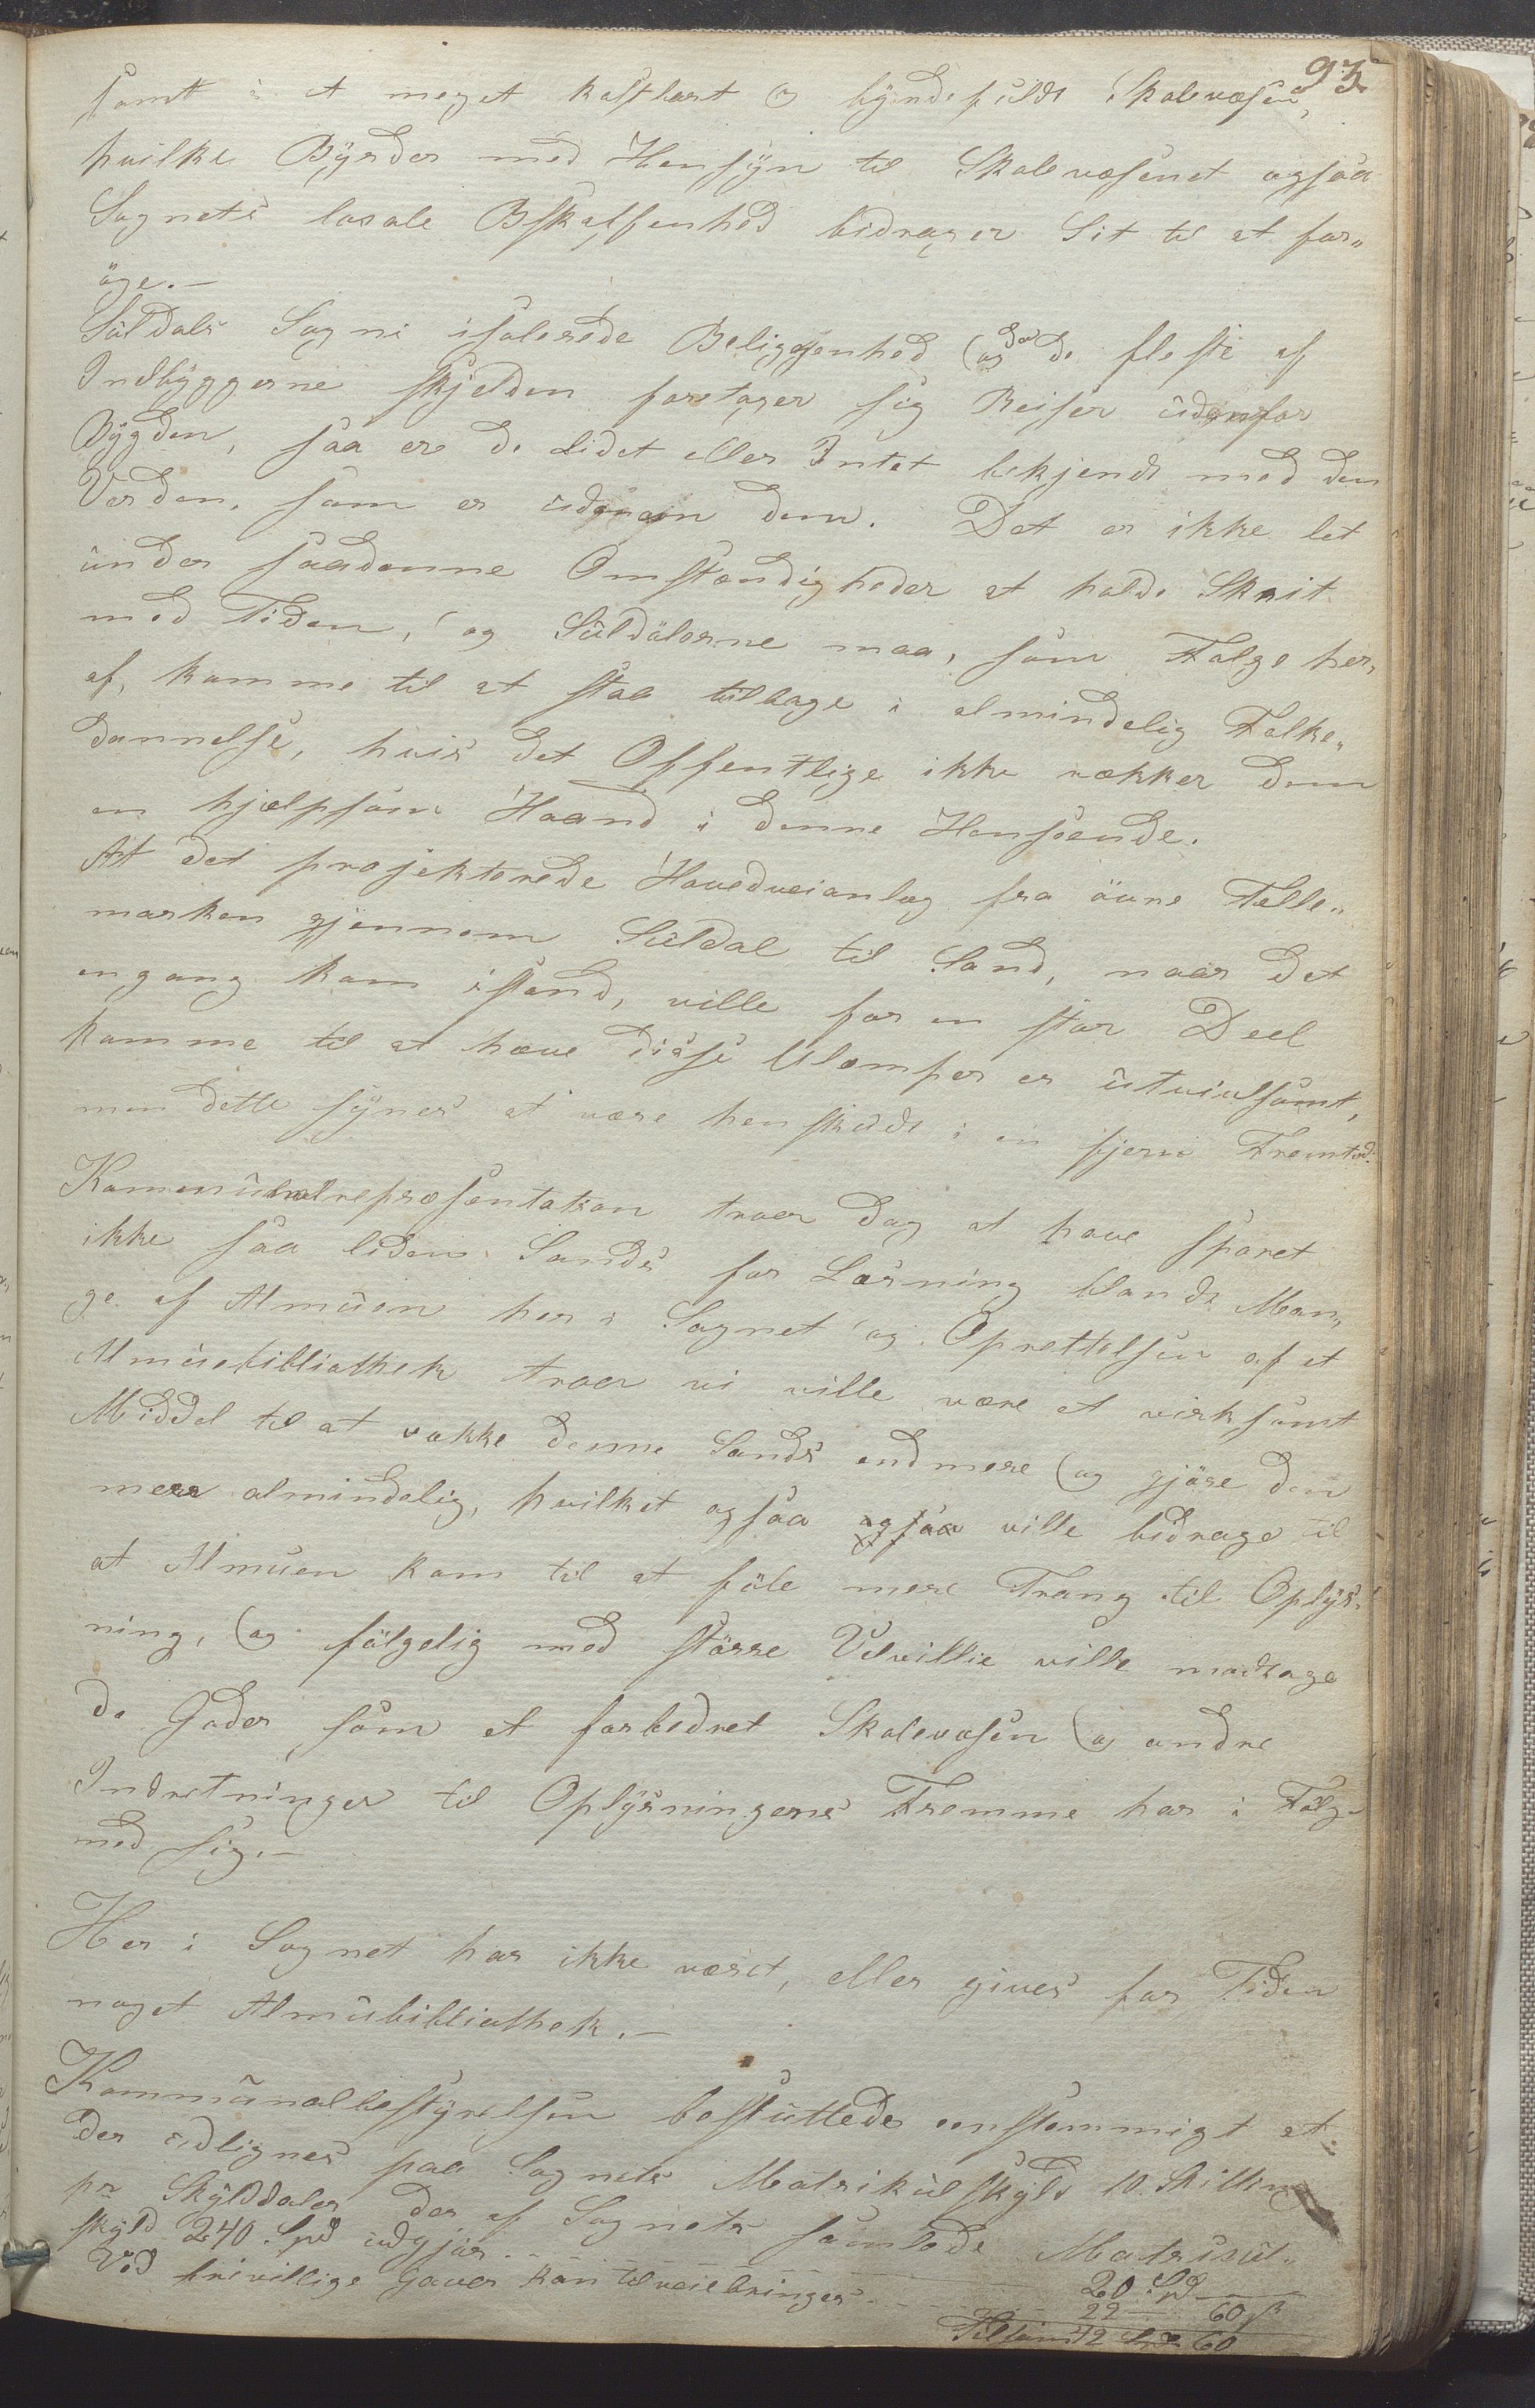 93.
samt i et meget kostbart og byrdefuldt Skolevæsen,
hvilke Byrder med Hensyn til Skolevæsenet ogsaa
Sognets locale Beskaffenhed bidrager Sit til at for„
øge.—
Suldals Sogns isolerede Beliggenhed og da de fleste af
Indbyggerne skjelden foretager sig Reiser udenfor
Bygden, saa ere de Lidet eller Intet bekjendt med den
Verden, som er udenom dem. Det er ikke let
under saadanne Omstændigheder at holde Skrit
med Tiden, og Suldølerne maa, som Følge her„
af, komme til at staa tilbage i almindelig Folke„
dannelse, hvis det Offentlige ikke rækker dem
en hjælpsom Haand i denne Henseende.
At det projekterede Hovedveianlæg fra øvre Telle„
marken gjennem Suldal til Sand, naar det
engang kom istand, ville for en stor Deel
komme til at hæve disse Ulemper er utvivlsomt,
men dette synes at være henskudt i en fjern Fremtid.
Kommunalrepræsentation troer dog at have sporet
ikke saa liden Sands for Læsning blandt Man„
ge af Almuen her i Sognet og Oprettelsen af et
Almuebibliothek troer vi ville være et virksomt
Middel til at vække denne Sands end mere og gjøre den
mere almindelig, hvilket ogsaa ogsaa ville bidrage til
at Almuen kom til at føle mere Trang til Oplys„
ning, og følgelig med større Velvillie ville modtage
de Goder, som et forbedret Skolevæsen og andre
Indretninger til Oplysningens Fremme har i Følge
med sig.—
Her i Sognet har ikke været, eller gives for Tiden
noget Almuebibliothek.—
Kommunalbestyrelsen besluttede eenstemmigt at
der udlignes paa Sognets Matrikulskyld 10. Skilling
pr Skylddaler der af Sognets samlede Matricul„
skyld 240. Spd udgjør . . . 20 Spd —
Ved frivillige Gaver kan tilveiebringes . . . 22 — 60 ß
Tilsam̄ 42 Spd 60